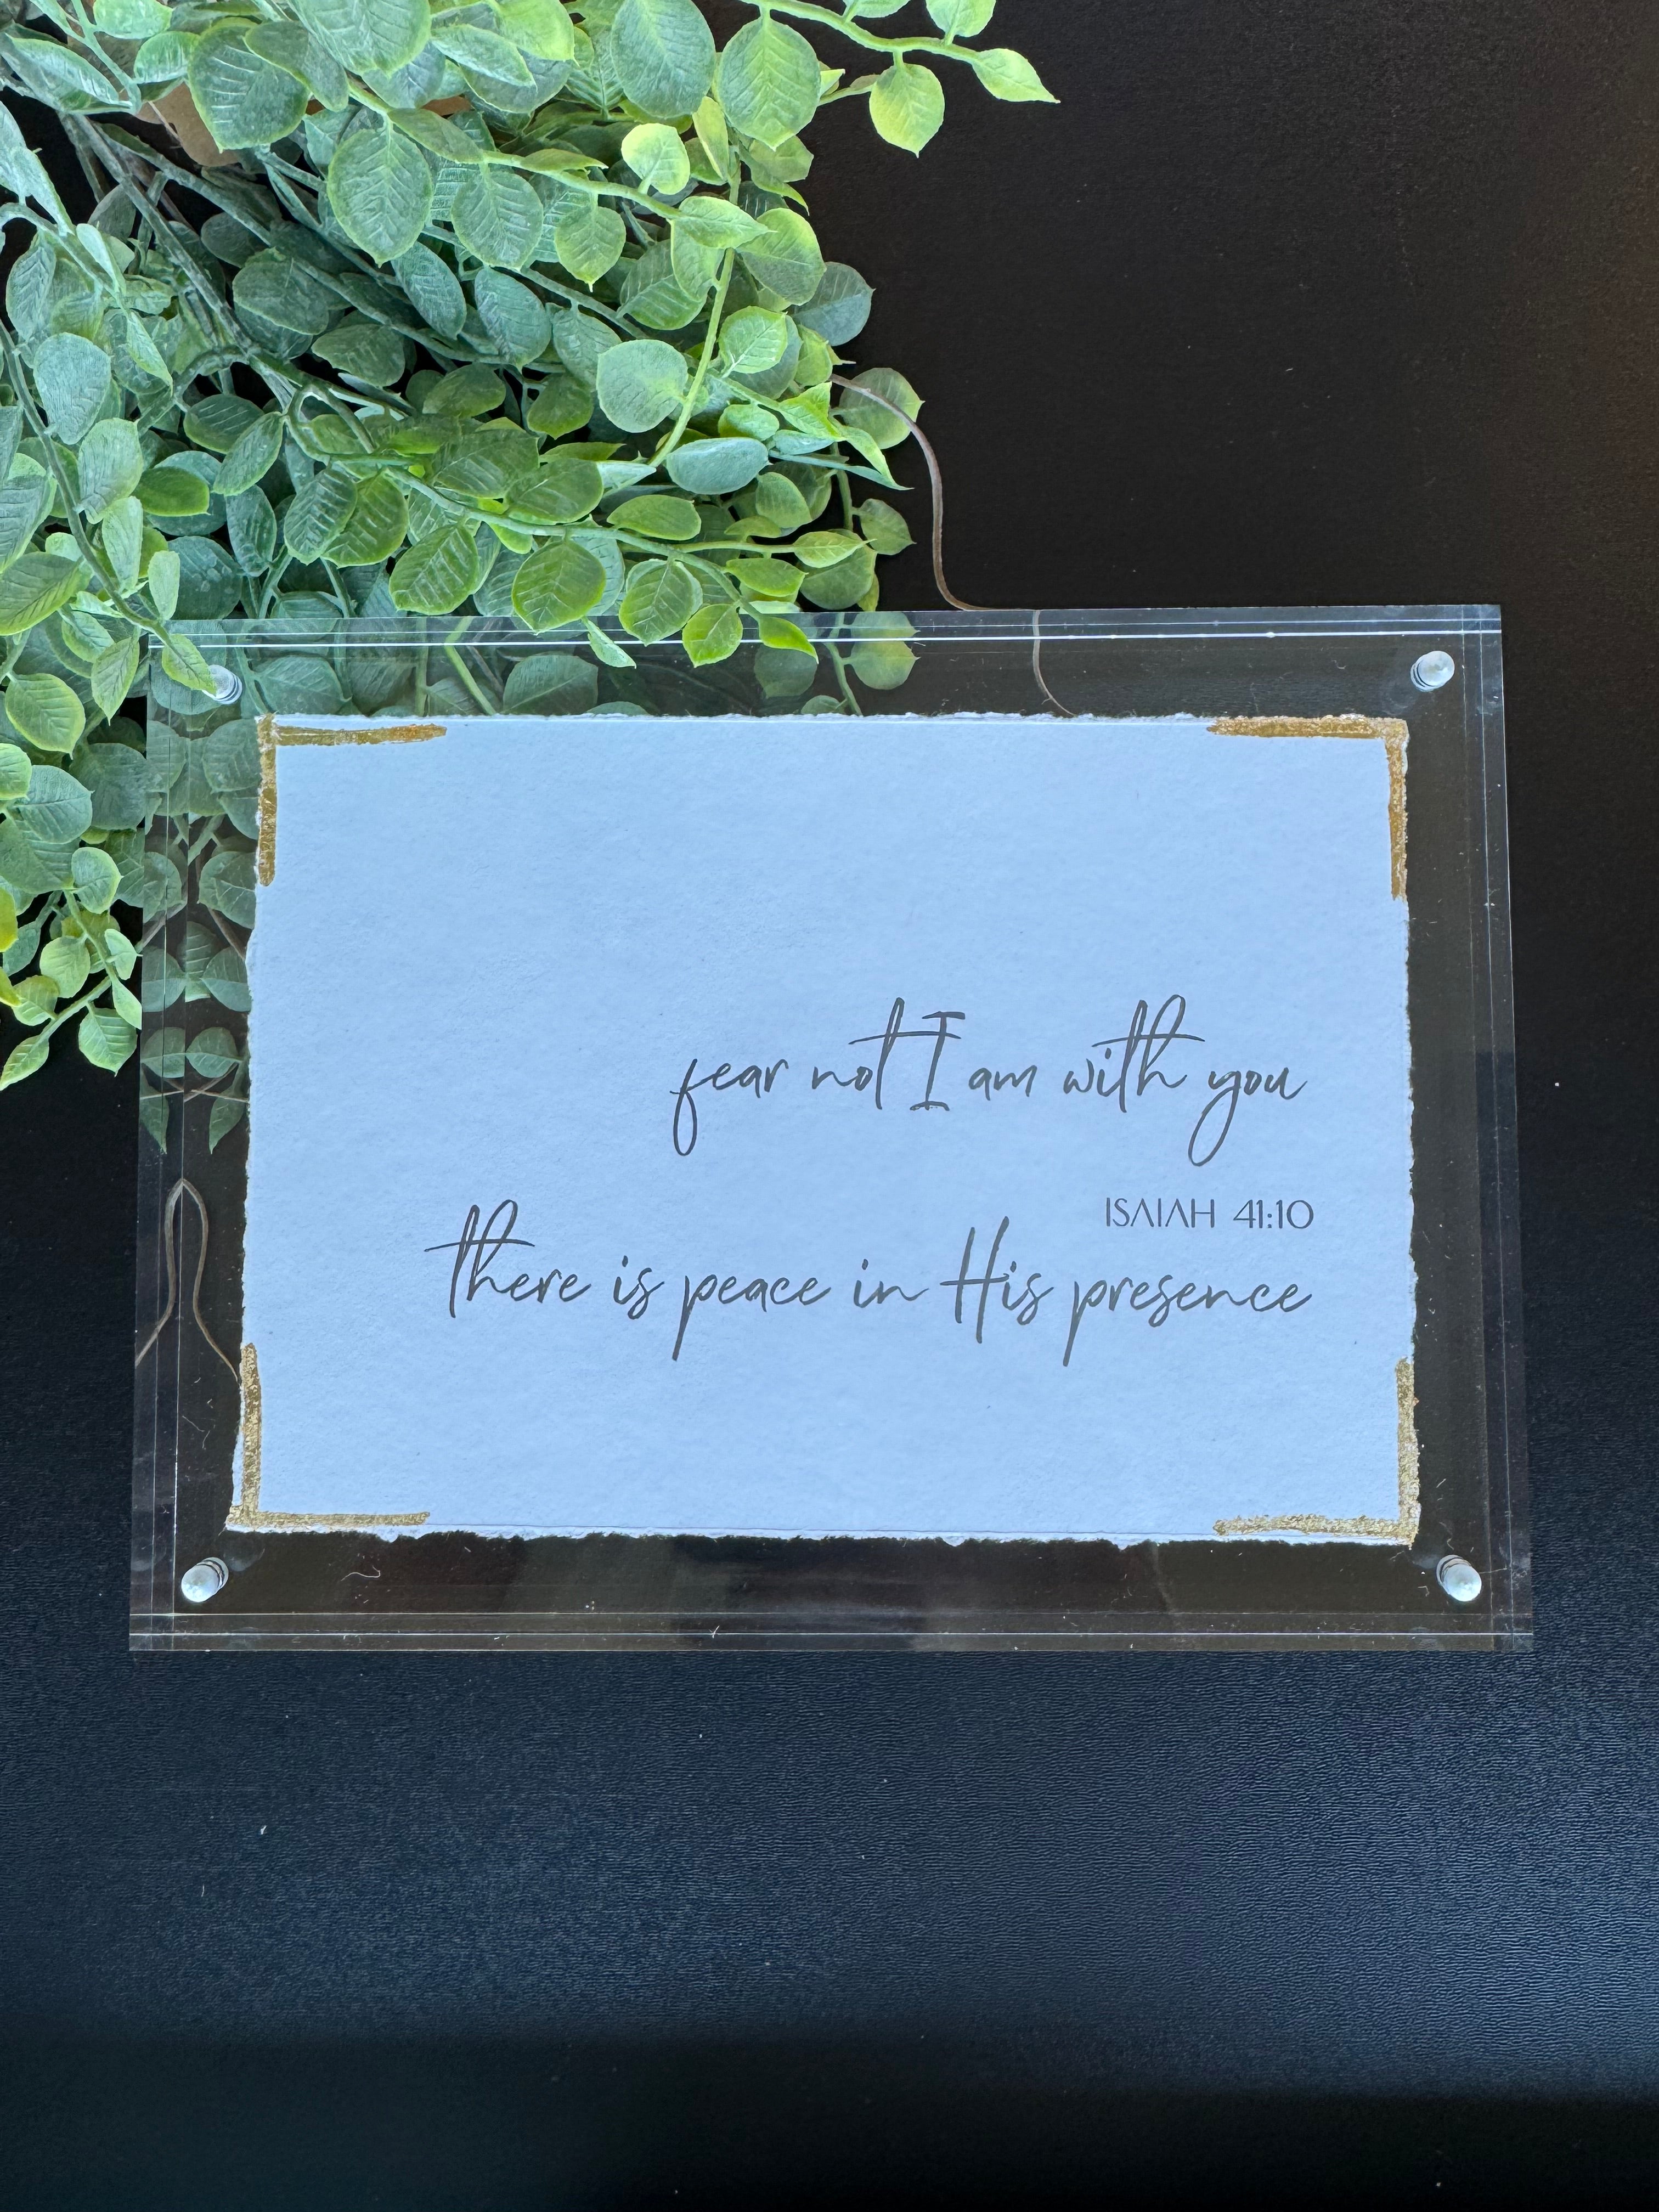 fear not I am with you
ISAIAH 41:10
there is peace in His presence